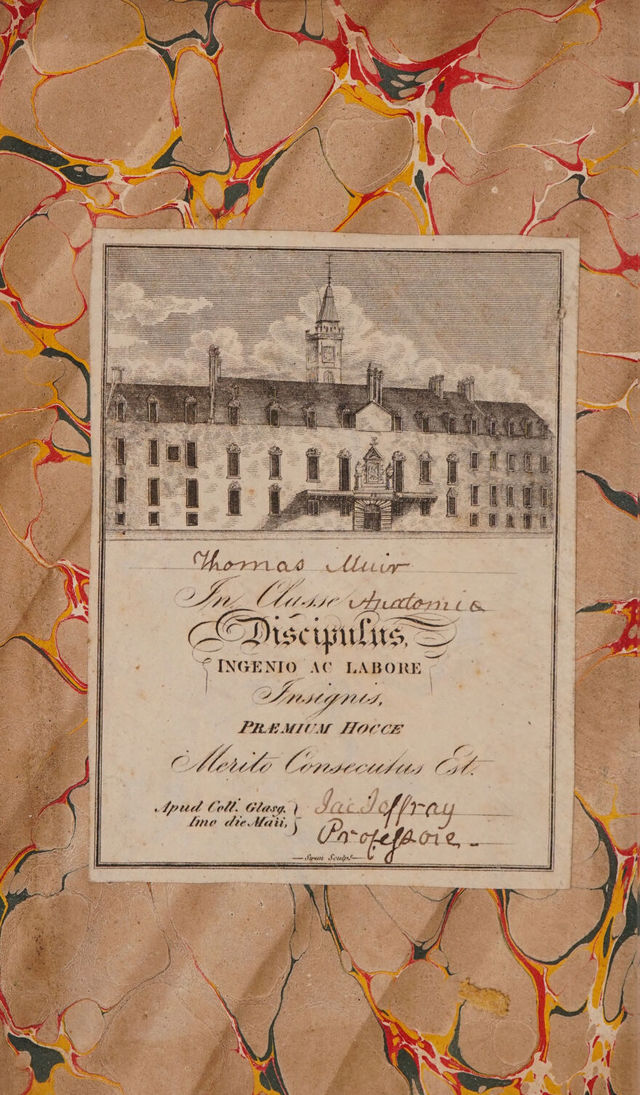 Thomas Muir
In Classe Anatomiæ
Discipulus,
INGENIO AC LABORE
Insignis,
PRÆMIUM HOCCE
Merito Consecutus Est.
Apud Coll. Glasg. } Jac Jeffray
Imo die Maii, Professore.
Swan Sculpt.